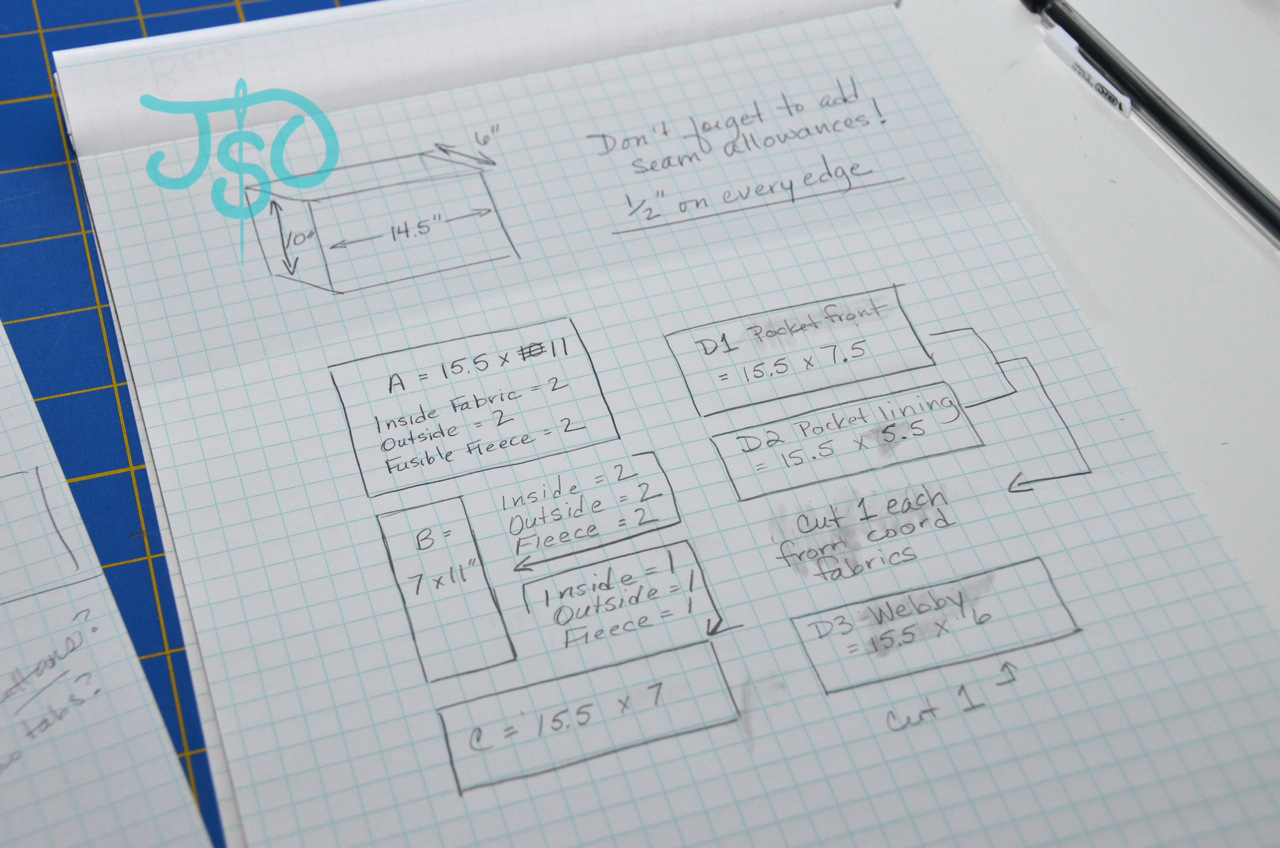 JSO
6"
10"
14.5"
Don't forget to add
seam allowances!
1/2" on every edge
A = 15.5 x 11
Inside Fabric = 2
Outside = 2
Fusible Fleece = 2
B =
7 x 11"
Inside = 2
Outside = 2
Fleece = 2
Inside = 1
Outside = 1
Fleece = 1
C = 15.5 x 7
D1 Pocket front
= 15.5 x 7.5
D2 Pocket lining
= 15.5 x 5.5
Cut 1 each
from coord
fabrics
D3 Webby
= 15.5 x 6
Cut 1
tabs?